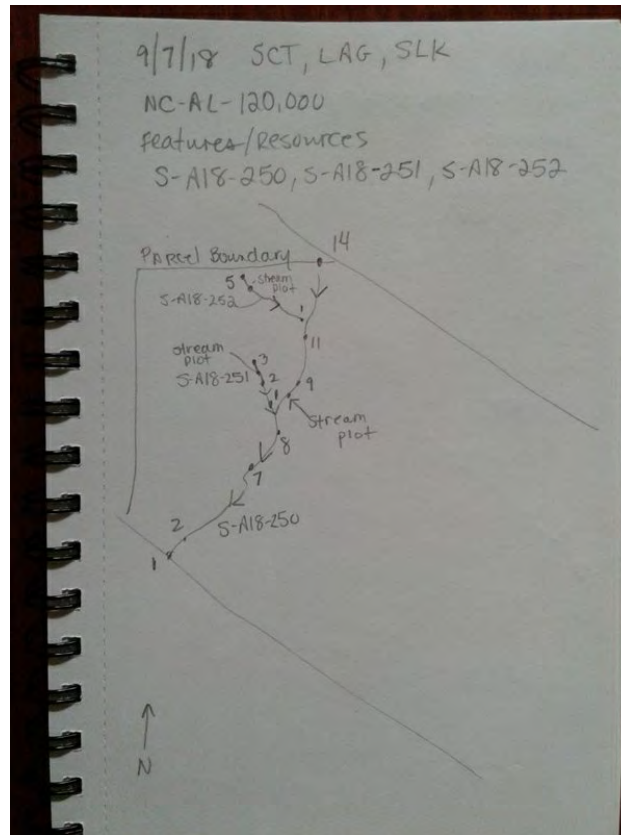 9/7/18 SCT, LAG, SLK
NC-AL-120,000
Features/Resources
S-A18-250, S-A18-251, S-A18-252
14
Parcel Boundary
5 stream plot
S-A18-252
1
11
stream plot
3
S-A18-251 2
1
9
stream plot
8
7
S-A18-250
2
1
N